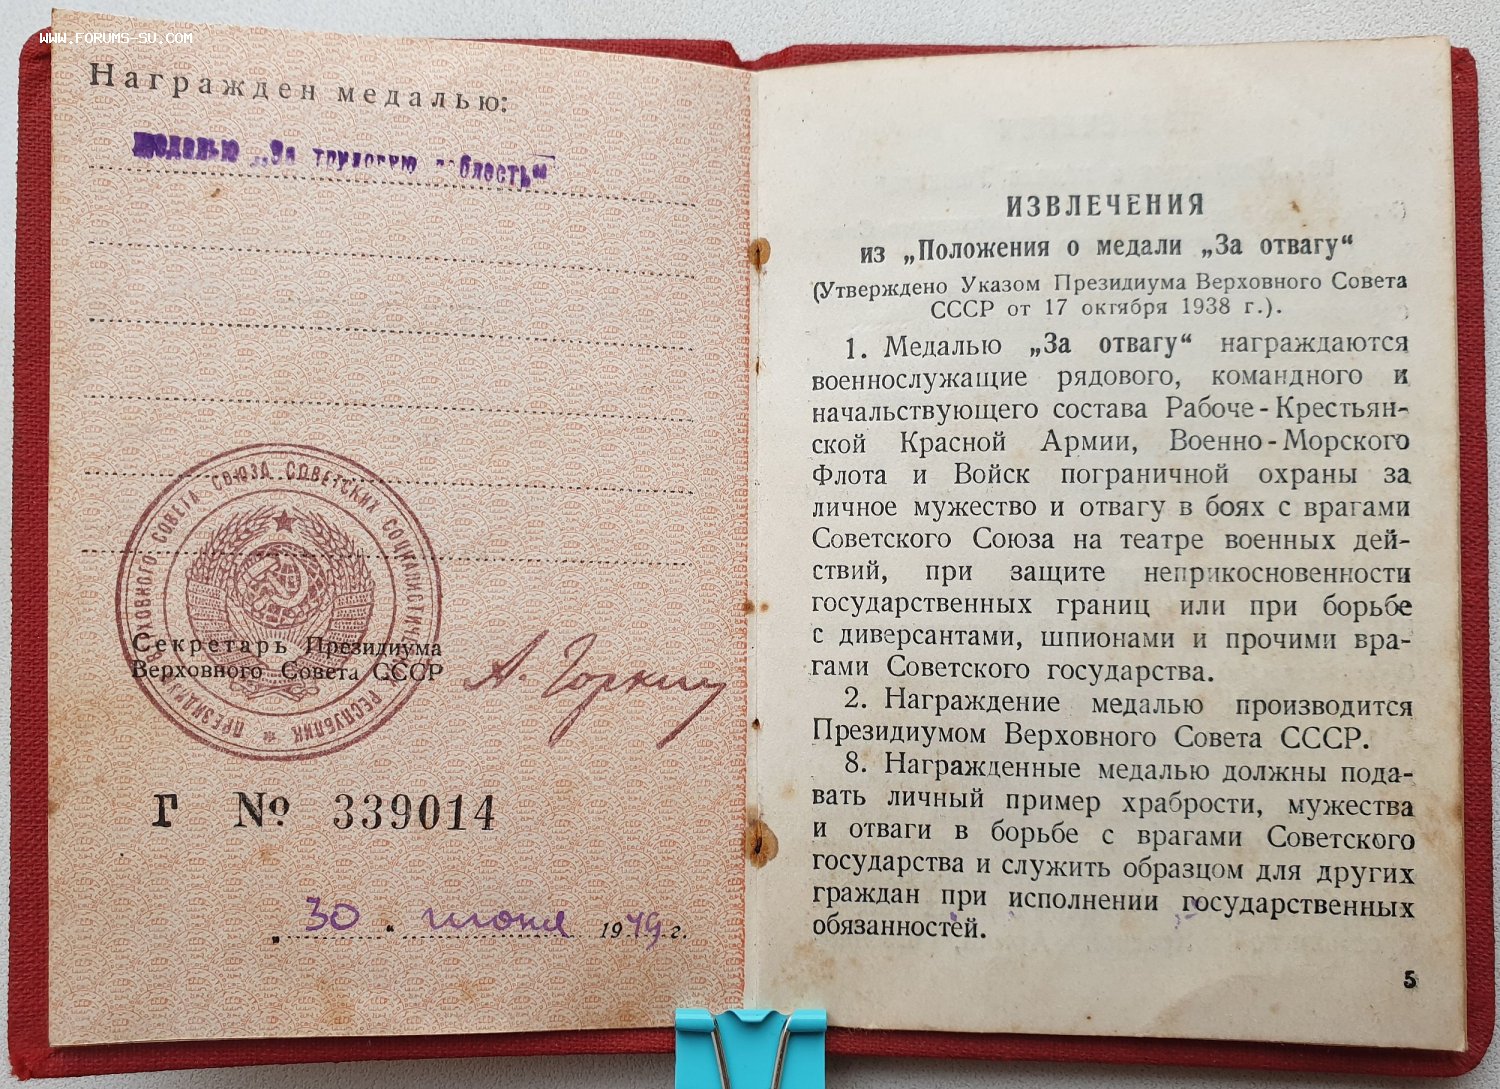 WWW.FORUMS-SU.COM
Награжден медалью:
медалью „За трудовую доблесть“
ПРЕЗИДИУМ ВЕРХОВНОГО СОВЕТА СОЮЗА СОВЕТСКИХ СОЦИАЛИСТИЧЕСКИХ РЕСПУБЛИК *
Секретарь Президиума
Верховного Совета СССР
А. Горкин
Г № 339014
„30“ июня 1949 г.
ИЗВЛЕЧЕНИЯ
из „Положения о медали „За отвагу“
(Утверждено Указом Президиума Верховного Совета
СССР от 17 октября 1938 г.).
1. Медалью „За отвагу“ награждаются
военнослужащие рядового, командного и
начальствующего состава Рабоче-Крестьян-
ской Красной Армии, Военно-Морского
Флота и Войск пограничной охраны за
личное мужество и отвагу в боях с врагами
Советского Союза на театре военных дей-
ствий, при защите неприкосновенности
государственных границ или при борьбе
с диверсантами, шпионами и прочими вра-
гами Советского государства.
2. Награждение медалью производится
Президиумом Верховного Совета СССР.
8. Награжденные медалью должны пода-
вать личный пример храбрости, мужества
и отваги в борьбе с врагами Советского
государства и служить образцом для других
граждан при исполнении государственных
обязанностей.
5